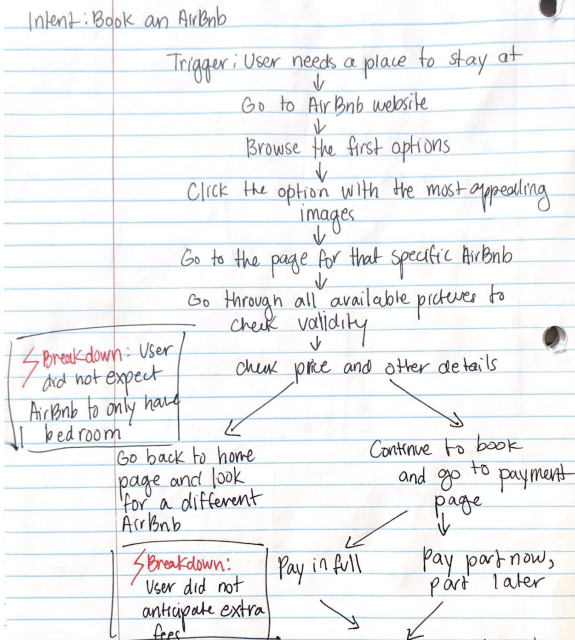 Intent: Book an AirBnb
Trigger: User needs a place to stay at
Go to AirBnb website
Browse the first options
Click the option with the most appealing
images
Go to the page for that specific AirBnb
Go through all available pictures to
check validity
check price and other details
Breakdown: User
did not expect
AirBnb to only have
1 bedroom
Go back to home
page and look
for a different
AirBnb
Continue to book
and go to payment
page
Breakdown:
User did not
anticipate extra
fees
Pay in full
Pay part now,
part later